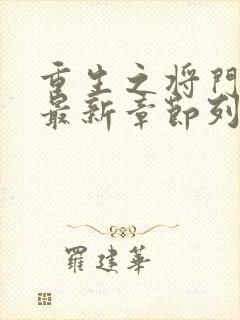 重生之将门
最新章节列
羅建華